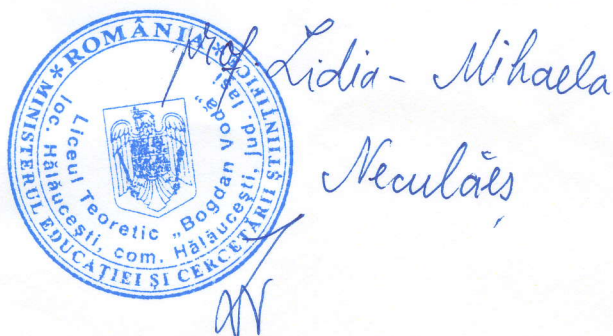 * ROMÂNIA *
MINISTERUL EDUCAȚIEI ȘI CERCETĂRII ȘTIINȚIFICE
Liceul Teoretic „Bogdan Vodă”
loc. Hălăucești, com. Hălăucești, jud. Iași
prof. Lidia - Mihaela
Neculăeș